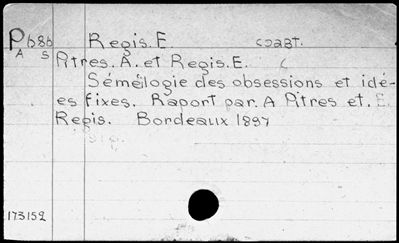 P686 Regis. E coавт.
A S Pitres. A. et Regis. E.
Séméilogie des obsessions et idé-
es fixes. Raport par. A Pitres et. E.
Regis. Bordeaux 1897
173152